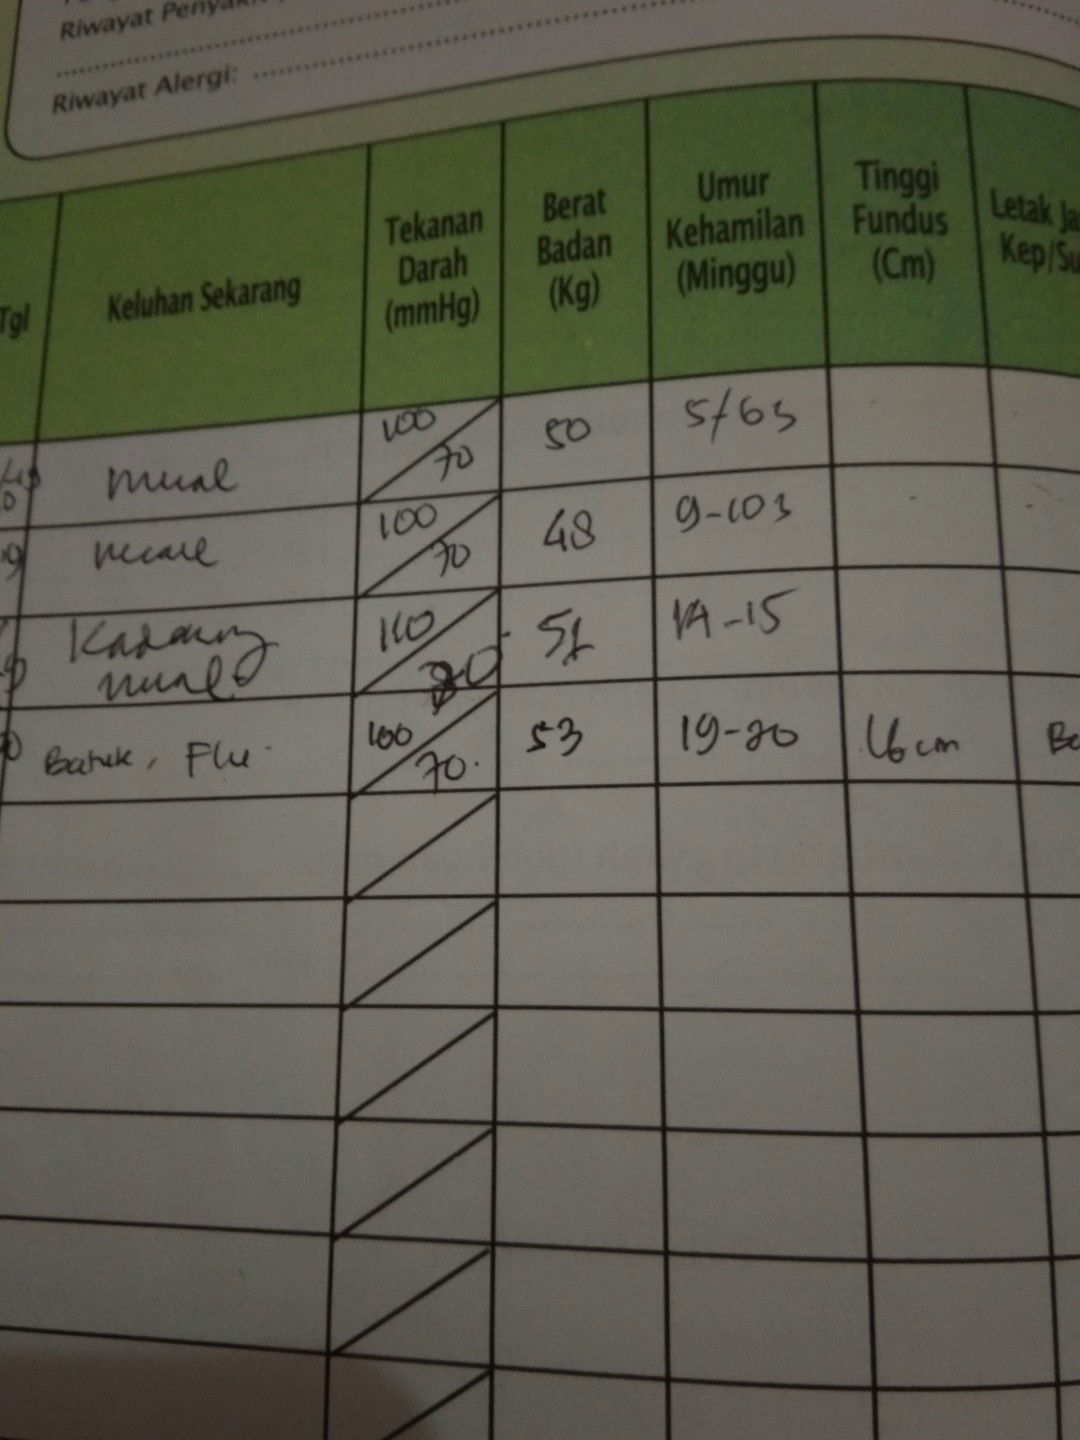 Riwayat Penyakit
Riwayat Alergi:
Tgl
Keluhan Sekarang
Tekanan
Darah
(mmHg)
Berat
Badan
(Kg)
Umur
Kehamilan
(Minggu)
Tinggi
Fundus
(Cm)
Letak Ja
Kep/Su
mual 100/70 50
100/70 48
Kadang 110/80 51 14-15
mual
Batuk, Flu 100/70. 53 19-20 16 cm